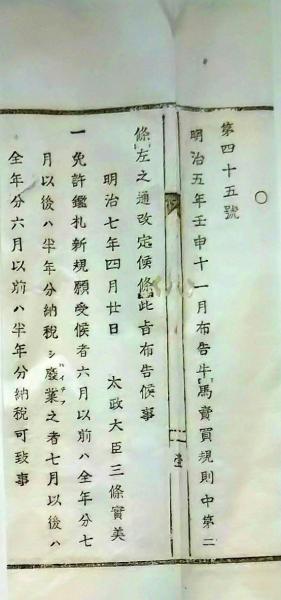 第四十五號
明治五年壬申十一月布告牛馬賣買規則中第二
條左之通改定候條此旨布告候事
明治七年四月廿日 太政大臣三條實美
一 免許鑑札新規願受候者六月以前ハ全年分七
月以後ハ半年分納税シ廢業之者七月以後ハ
全年分六月以前ハ半年分納税可致事
壹